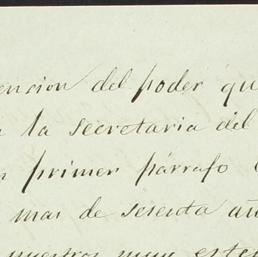 encion del poder qu
la secretaria del
primer párrafo
mas de sesenta añ
nuestros muy este